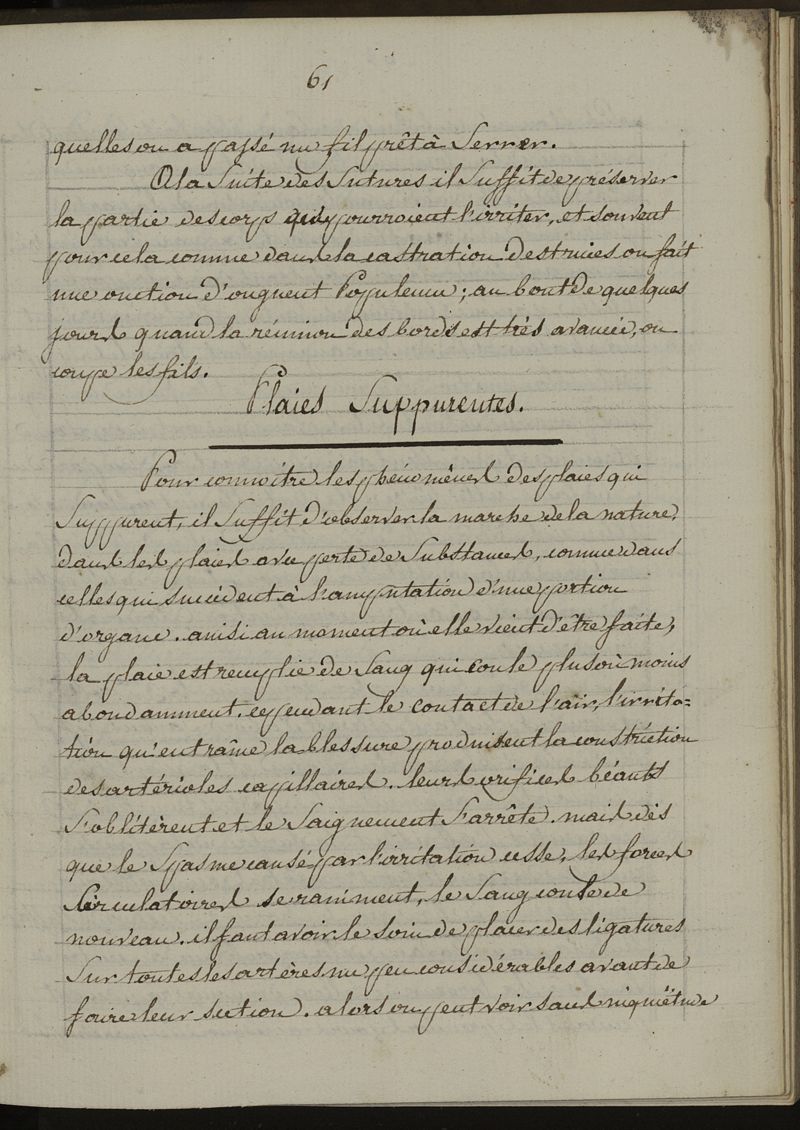 61
quelles on a passé un fil prêt à Serrer.
A la Suite des Sutures il Suffit de préserver
la partie des corps qui pourroient l'irriter, et souvent
pour cela comme dans la castration des truies on fait
une onction d'onguent Populeum; au bout de quelques
jours quand la réunion des bords est très avancée, on
coupe les fils.
Plaies Suppurentes.
Pour connoître les phénomènes des plaies qui
Suppurent, il Suffit d'observer la marche de la nature,
dans les plaies avec perte de Substances, comme dans
celles qui succèdent à l'amputation d'une portion
d'organe. ainsi au moment où elle vient d'être faite,
la plaie est remplie de Sang qui coule plus où moins
abondamment. cependant le contact de l'air, l'irrita=
tion qu'entraîne la blessure produisent la constriction
des artérioles capillaires. leurs orifices béants
S'oblitèrent et le Saignement S'arrête. mais dès
que le Spasme causé par l'irritation cesse, les forces
Circulatoires se raniment, le Sang coule de
nouveau. il faut avoir le soin de placer des ligatures
Sur toutes les artères un peu considérables avant de
faire leur section. alors on peut voir sans inquiëtude